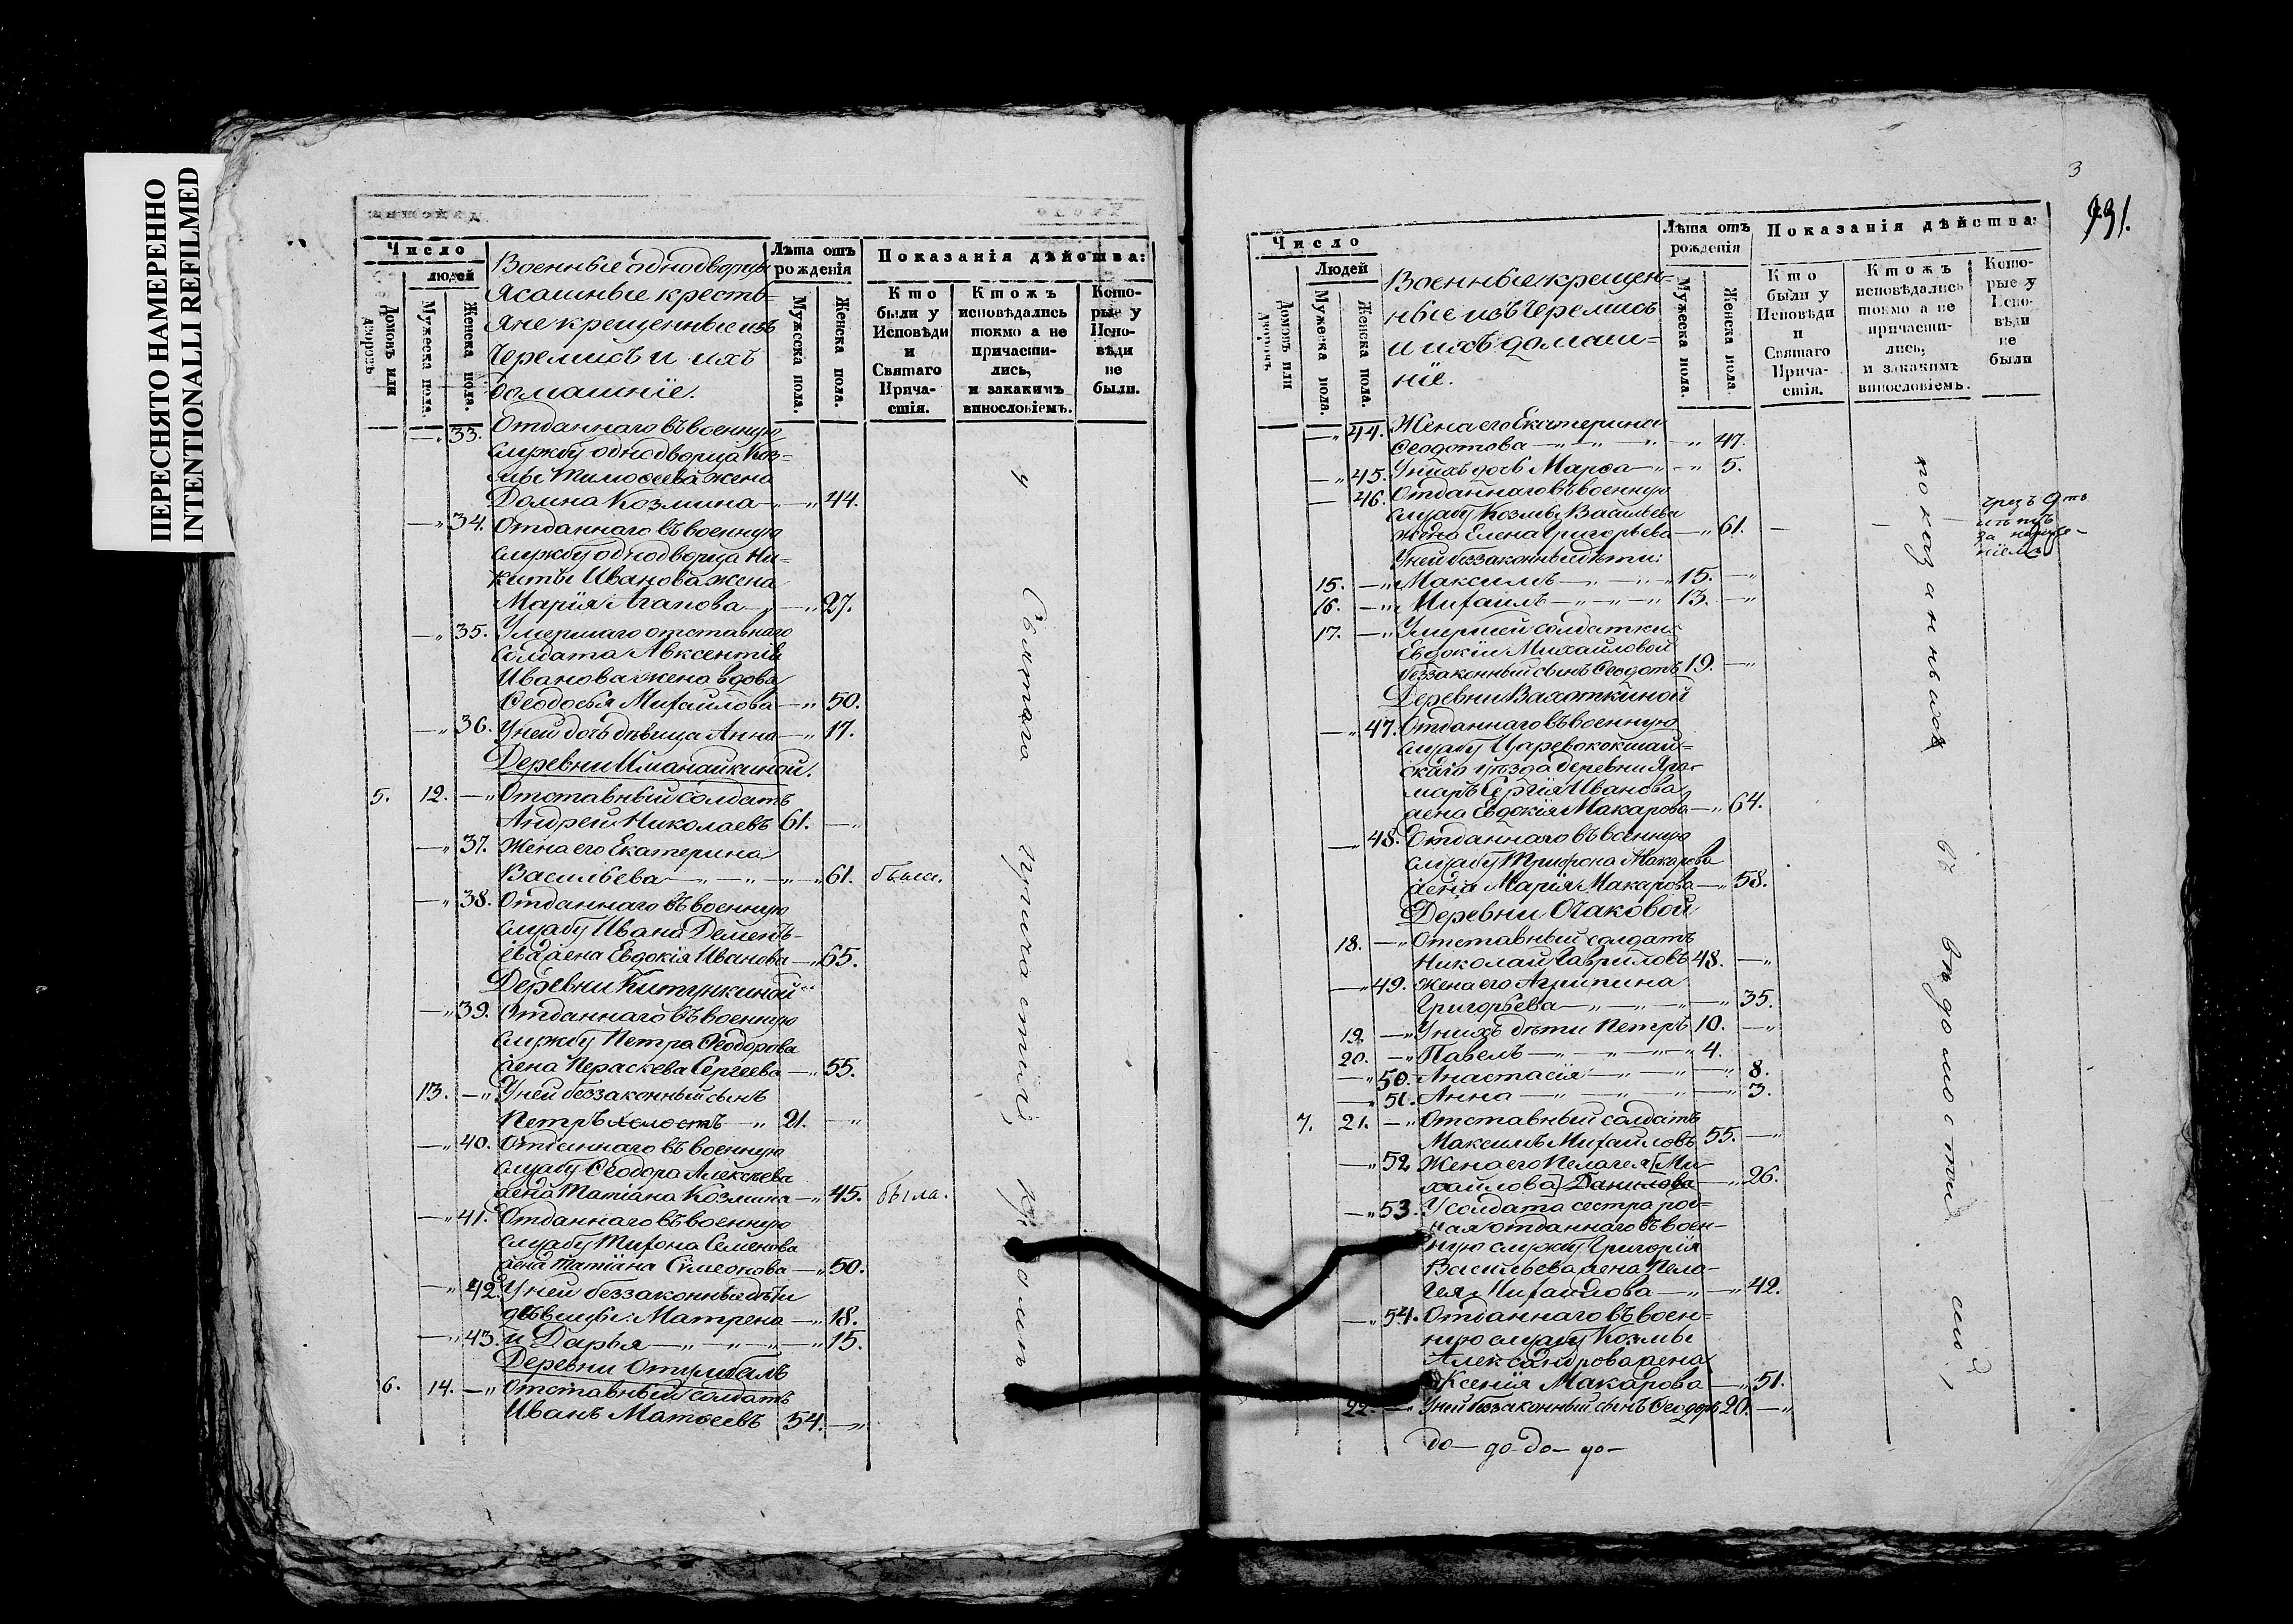 ПЕРЕСНЯТО НАМЕРЕННО
INTENTIONALLI REFILMED
Число
людей
Домовъ или дворовъ
Мужеска пола.
Женска пола.
Военные однодворцы
Ясашные кресть-
яне крещенные изъ
Черемисъ и ихъ
домашніе.
Лѣта отъ рожденія
Мужеска пола.
Женска пола.
Показанія дѣйства:
Кто были у Исповѣди и Святаго Прича-стія.
Ктожъ исповѣдались токмо а не причасти-лись, и закакимъ винословіемъ.
Кото-рые у Испо-вѣди не были.
—„ 33. Отданнаго въ военную
службу однодворца Коз-
мы Тимоѳеева жена
Домна Козмина —„ 44.
—„ 34. Отданнаго въ военную
службу однодворца Ни-
киты Иванова жена
Марія Агапова —„ —„ 27.
—„ 35. Умершаго отставнаго
солдата Авксентія
Иванова жена вдова
Ѳеодосья Михайлова —„ 50.
—„ 36. У ней дочь дѣвица Анна —„ 17.
Деревни Иманайкиной.
5. 12. —„ Отставный солдатъ
Андрей Николаевъ 61. —„
—„ 37. Жена его Екатерина
Васильева —„ —„ —„ 61. были.
—„ 38. Отданнаго въ военную
службу Ивана Демент-
іева жена Евдокія Иванова —„ 65.
Деревни Китункиной
—„ 39. Отданнаго въ военную
службу Петра Ѳеодорова
жена Параскева Сергеева —„ 55.
13. —„ У ней беззаконный сынъ
Петръ холостъ —„ 21. —„
—„ 40. Отданнаго въ военную
службу Ѳеодора Алексѣева
жена Татіана Козмина —„ 45. была.
—„ 41. Отданнаго въ военную
службу Тихона Семенова
жена Татіана Симеонова —„ 50.
—„ 42. У ней беззаконныя дѣти
дѣвицы: Матрена —„ 18.
—„ 43. и Дарья —„ —„ —„ —„ 15.
Деревни
6. 14. —„ Отставный солдатъ
Иванъ Матѳеевъ 54. —„
у Святаго причастія, кромѣ
3
791.
Число
Людей
Домовъ или дворовъ
Мужеска пола.
Женска пола.
Военные крещен-
ные изъ Черемисъ
и ихъ домаш-
ніе.
Лѣта отъ рожденія
Мужеска пола.
Женска пола.
Показанія дѣйства:
Кто были у Исповѣди и Святаго Прича-стія.
Ктожъ исповѣдались токмо а не причасти-лись, и закакимъ винословіемъ.
Кото-рые у Испо-вѣди не были
—„ 44. Жена его Екатерина
Ѳеодотова —„ —„ —„ 47.
—„ 45. У нихъ дочь Марѳа —„ —„ 5.
— 46. Отданнаго въ военную
службу Козмы Васильева
жена Елена Григорьева —„ 61. — —
У ней беззаконныя дѣти:
15. —„ Максимъ —„ —„ 15. —„
16. —„ Михаилъ —„ —„ —„ 13. —„
17. —„ Умершей солдатки
Евдокіи Михайловой
беззаконный сынъ Ѳеодотъ 19. —„
Деревни Вахоткиной
—„ 47. Отданнаго въ военную
службу Царевококшай-
скаго уѣзда деревни Яра-
маръ Сергія Иванова
жена Евдокія Макарова —„ 64.
—„ 48. Отданнаго въ военную
службу Трифона Макарова
жена Марія Макарова —„ 58.
Деревни Очаковой
18. —„ Отставный солдатъ
Николай Гавриловъ 48. —„
—„ 49. Жена его Агрипина
Григорьева —„ —„ —„ —„ 35.
19. —„ У нихъ дѣти Петръ 10. —„
20. —„ Павелъ —„ —„ —„ 4.
—„ 50. Анастасія —„ —„ —„ 8.
—„ 51. Анна —„ —„ —„ 3.
7. 21. —„ Отставный солдатъ
Максимъ Михайловъ 55. —„
—„ 52. Жена его Пелагея [Ми-
хайлова] Данилова —„ 26.
—„ 53. У солдата сестра род-
ная отданнаго въ воен-
ную службу Григорія
Васильева жена Пела-
гея Михайлова —„ —„ 42.
—„ 54. Отданнаго въ воен-
ную службу Козмы
Александрова жена
Ксенія Макарова —„ 51.
22. —„ У ней беззаконный сынъ Ѳеодоръ 20. —„
до— до— до— до—
показанныхъ въ вѣдомости сей